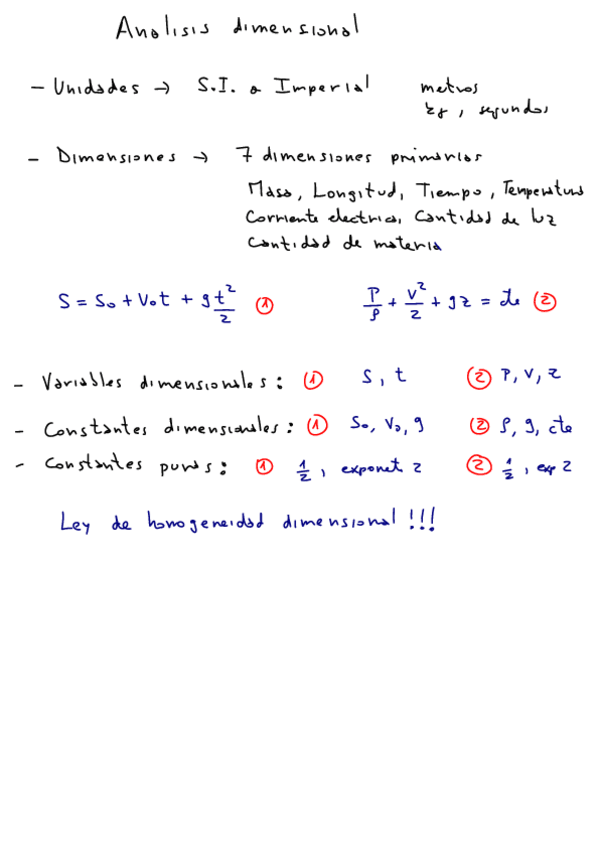 Analisis dimensional
- Unidades → S.I. o Imperial metros
kg, segundos
- Dimensiones → 7 dimensiones primarias
Masa, Longitud, Tiempo, Temperatura
Corriente electrica, Cantidad de luz
Cantidad de materia
S = S₀ + V₀t + g t²/2 ① P/ρ + V²/2 + gz = cte ②
- Variables dimensionales: ① S, t ② P, V, z
- Constantes dimensionales: ① S₀, V₀, g ② ρ, g, cte
- Constantes puras: ① 1/2, exponet 2 ② 1/2, exp 2
Ley de homogeneidad dimensional!!!